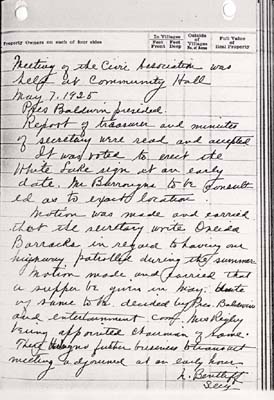 Property Owners on each of four sides
In Villages
Feet Front
Feet Deep
Outside of Villages
No. of Acres
Full Value of Real Property
Meeting of the Civic Association was
held at Community Hall
May 7, 1925
Pres Baldwin presided.
Report of treasurer and minutes
of secretary were read and accepted
It was voted to erect the
White Lake sign at an early
date. Mr Burroughs to be consult
ed as to exact location.
Motion was made and carried
that the secretary write Oneida
Barracks in regard to having our
highway patrolled during the summer.
Motion made and carried that
a supper be given in May. Date
of same to be decided by Pres. Baldwin
and entertainment com. Mrs
being appointed chairman of same.
There being no further business to transact
meeting adjourned at an early hour
Secy